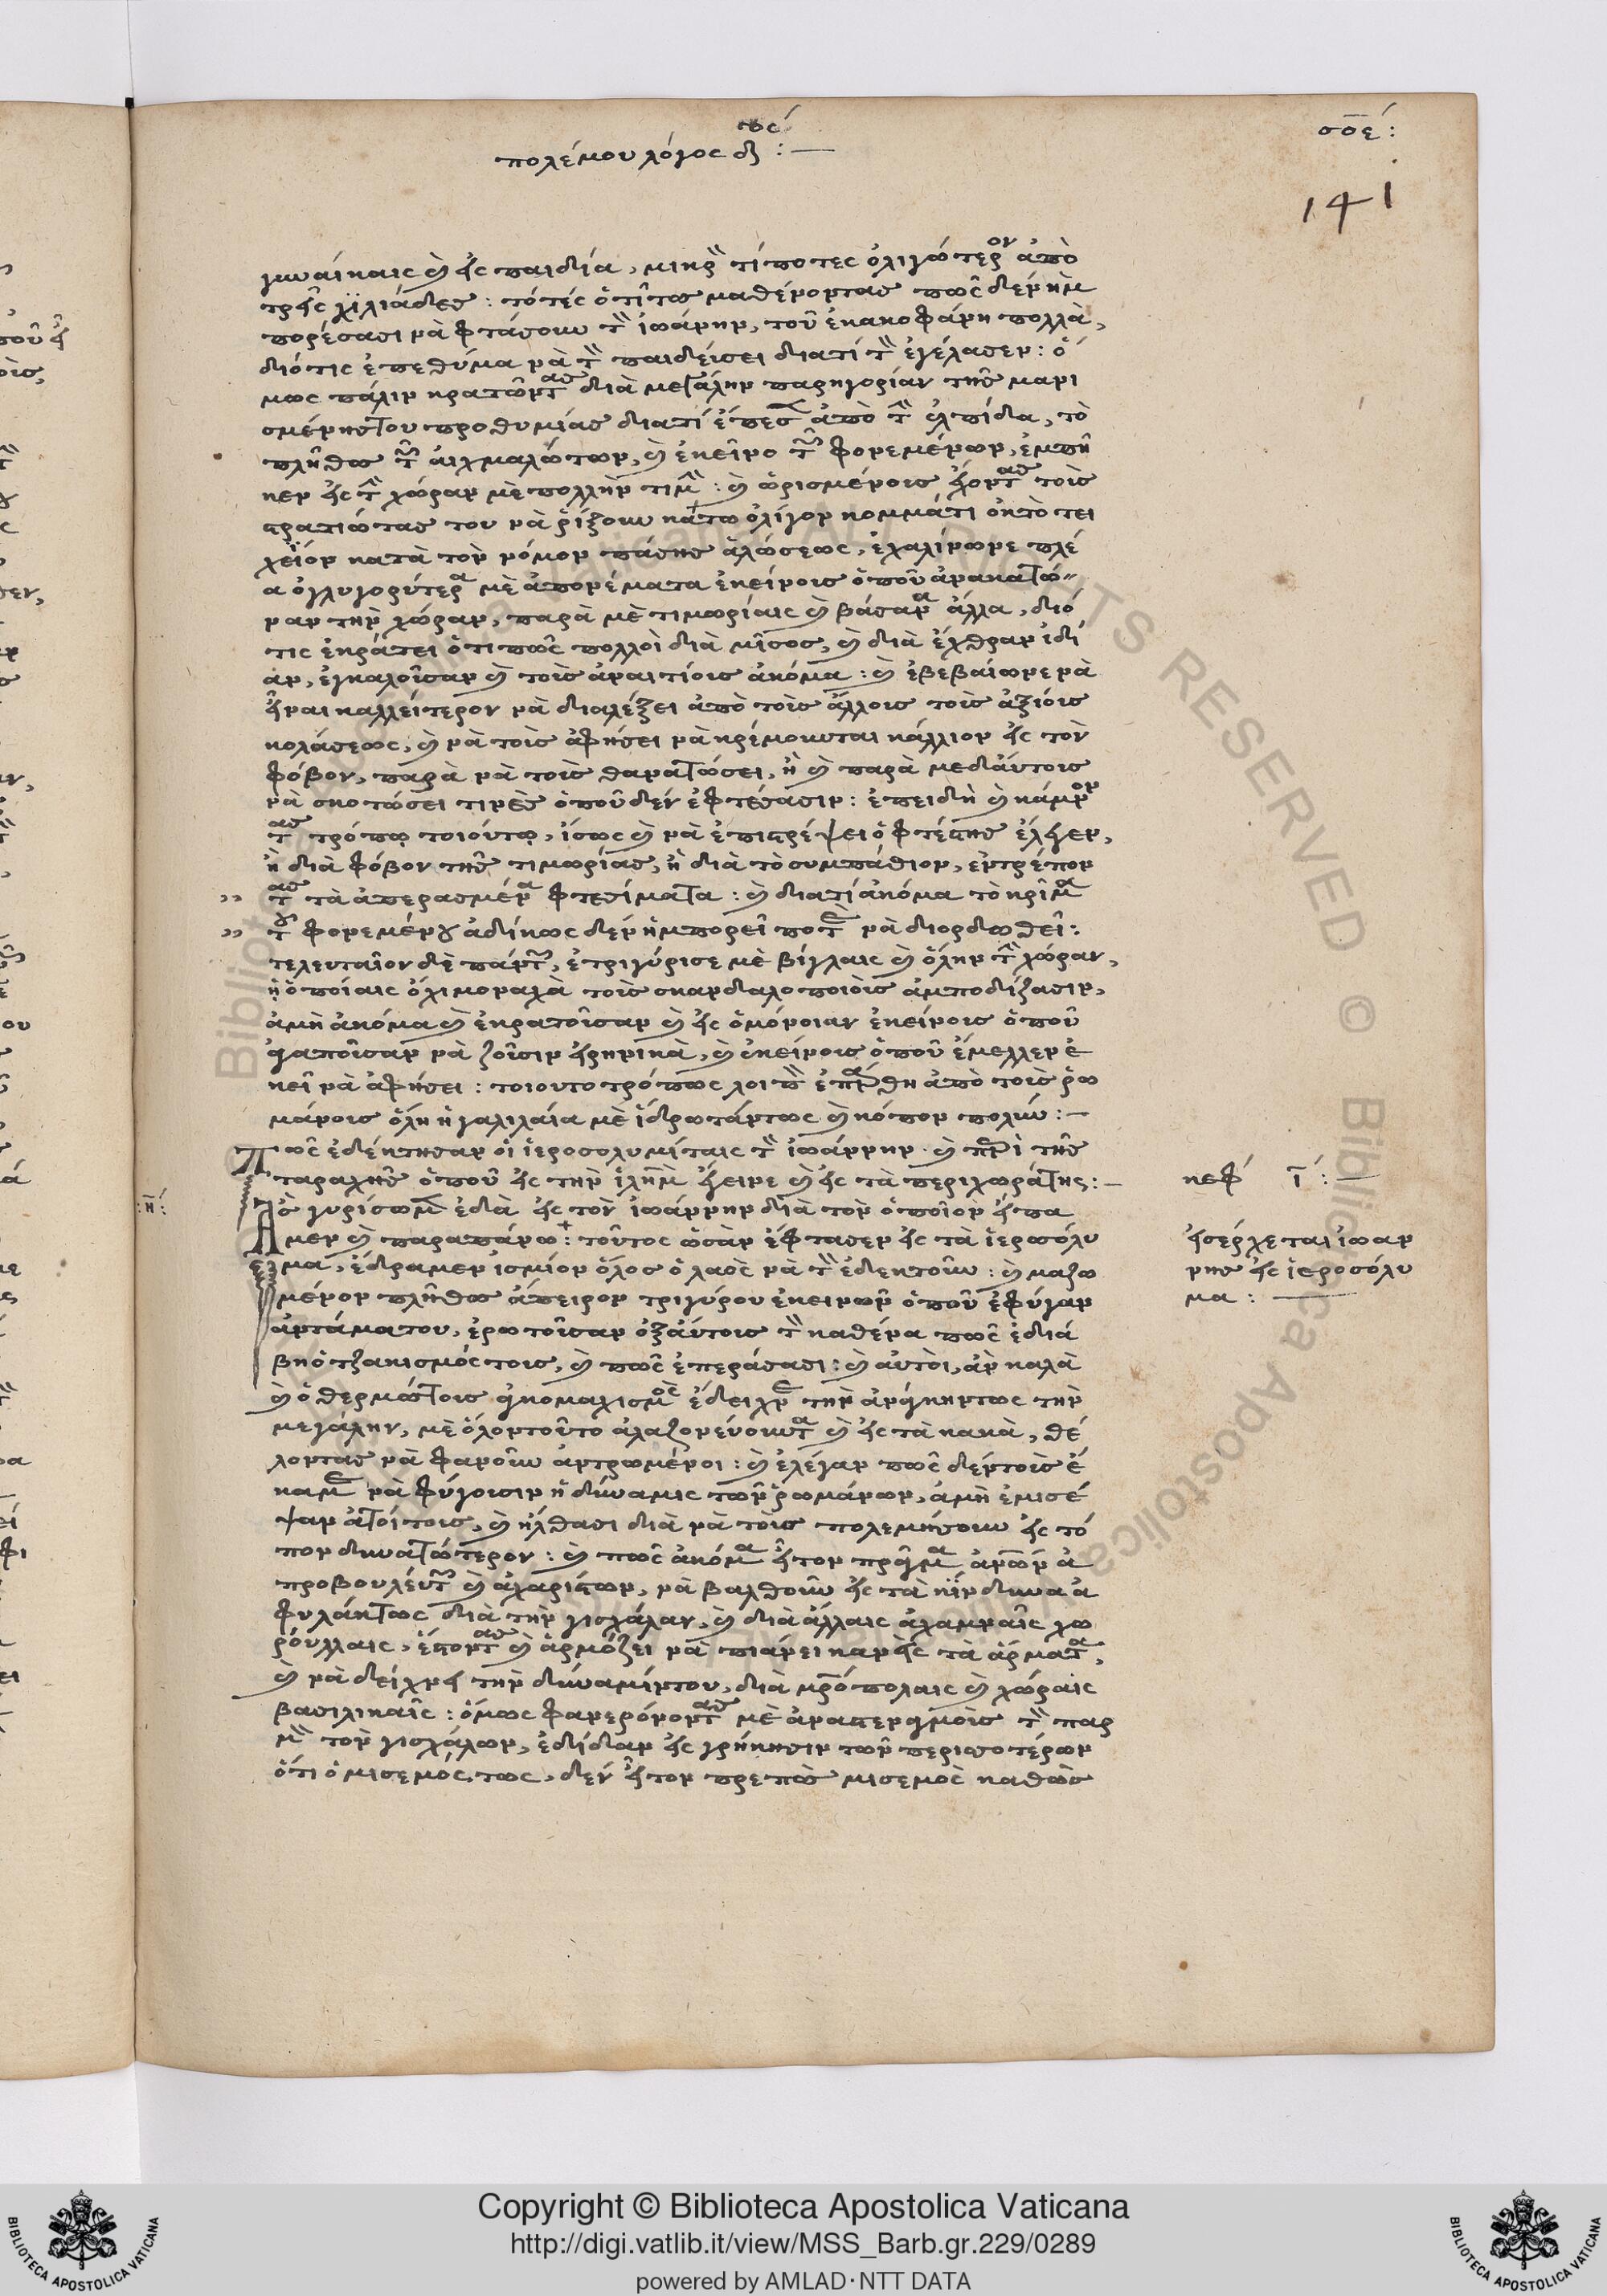 πολέμου λόγος δ ος´ : —
σοε´ :
141
γυναίκαις καὶ εἰς παιδία, μικρὸν τίποτες ὀλιγώτερον ἀπὸ
τρεῖς χιλιάδες : τότες ὁ τίτος μαθένοντας πῶς δὲν ἠμ
πορέσασι νὰ φτάσουν τὸν ἰωάννην, τοῦ ἐκακοφάνη πολλὰ,
διότις ἐπεθύμα νὰ τὸν παιδεύσει διατί τὸν ἐγέλασεν : ὅ
μως πάλιν κρατῶντας διὰ μεγάλην παρηγορίαν τῆς μανι
σμένης του προθυμίας διατί ἔπεσε ἀπὸ τὴν ἐλπίδα, τὸ
πλῆθος τῶν αἰχμαλώτων, καὶ ἐκεῖνο τῶν φονεμένων, ἐμπῆ
κεν εἰς τὴν χώραν μὲ πολλὴν τιμὴν : καὶ ὁρισμένοις ἔχοντας τοὺς
στρατιώτας του νὰ ῥίξουν κάτω ὀλίγον κομμάτι ἐκ τὸ τει
χεῖον κατὰ τὸν νόμον πάσης ἁλώσεως, ἐχαλίνωνε πλέ
α ὀγλυγορύτερα μὲ ἀπονέματα ἐκείνοις ὁποῦ ἀνακατώ-
ναν τὴν χώραν, παρὰ μὲ τιμωρίαις καὶ βάσανα ἄλλα, διό
τις ἐκράτει ὅτι πῶς πολλοὶ διὰ μῖσος, καὶ διὰ ἔχθραν ἰδί
αν, ἐγκαλοῦσαν καὶ τοὺς ἀναιτίοις ἀκόμα : καὶ ἐβεβαίωνε νὰ
εἶναι καλλείτερον νὰ διαλέξει ἀπὸ τοὺς ἄλλοις τοὺς ἀξίοις
κολάσεως, καὶ νὰ τοὺς ἀφήσει νὰ κρέμουνται κάλλιον εἰς τὸν
φόβον, παρὰ νὰ τοὺς θανατώσει, ἢ καὶ παρὰ μεδαύτοις
νὰ σκοτώσει τινὲς ὁποῦ δὲν ἐφτέσασιν : ἐπειδὴ καὶ κάμνον
τας τρόπῳ τοιούτῳ, ἴσως καὶ νὰ ἐπιστρέψει ὁ φτέστης ἔλεγεν,
ἢ διὰ φόβον τῆς τιμωρίας, ἢ διὰ τὸ συμπάθιον, ἐντρέπον
,, τας τὰ ἀπερασμένα φτεσίματα : καὶ διατί ἀκόμα τὸ κρῖμα
,, τοῦ φονεμένου ἀδίκως δὲν ἠμπορεῖ ποτὲ νὰ διορθωθεῖ :
τελευταῖον δὲ πάντων, ἐτριγύρισε μὲ βίγλαις καὶ ὅλην τὴν χώραν,
ἡ ὁποίαις ὄχι μοναχὰ τοὺς σκανδαλοποιοὺς ἀμποδίζασιν,
ἀμὴ ἀκόμα καὶ ἐκρατοῦσαν καὶ εἰς ὁμόνοιαν ἐκείνοις ὁποῦ
ἀγαποῦσαν νὰ ζοῦσιν εἰρηνικὰ, καὶ ἐκείνοις ὁποῦ ἔμελλεν ἐ
κεῖ νὰ ἀφήσει : τοιουτοτρόπως λοιπὸν ἐπάρθη ἀπὸ τοὺς ῥω
μάνοις ὅλη ἡ γαλιλαία μὲ ἵδρωταντως καὶ κόπον πολύν : —
Πῶς ἐδέκτησαν οἱ ἱεροσολυμίταις τὸν ἰωάννην · καὶ περὶ τῆς
ταραχῆς ὁποῦ εἰς τὴν ἱλὴμ ἔγεινε καὶ εἰς τὰ περιχωράτης : —
κεφ ι´ : —
: η : Ἂς γυρίσωμεν ἐδὰ εἰς τὸν ἰωάννην διὰ τὸν ὁποῖον εἴπα
μεν καὶ παραπάνω : τοῦτος ὡσὰν ἔφτασεν εἰς τὰ ἱεροσόλυ
μα, ἔδραμεν ἰσμίον ὅλος ὁ λαὸς νὰ τὸν ἐδεκτοῦν : καὶ μαζω
εἰσέρχεται ἰωάν
νης εἰς ἱεροσόλυ
μα : —
μένον πλῆθος ἄπειρον τριγύρου ἐκεινῶν ὁποῦ ἐφύγαν
ἀντάματου, ἐρωτοῦσαν ἐξαύτοις τὸν καθένα πῶς ἐδιά
βη ὁ τζακισμός τοις, καὶ πῶς ἐπεράσασι : καὶ αὐτοὶ, ἂν καλὰ
καὶ ὁ θερμώτοις ἀγκομαχισμὸς ἔδειχνε τὴν ἀνάγκηντως τὴν
μεγάλην, μὲ ὅλοντοῦτο ἀλαζονεύουντα καὶ εἰς τὰ κακὰ, θέ
λοντας νὰ φανοῦν ἀντρωμένοι : καὶ ἐλέγαν πῶς δὲντοὺς ἔ
καμε νὰ φύγοισιν ἡ δύναμις τῶν ῥωμάνων, ἀμὴ ἐμισέ
ψαν ἀτοίτοις, καὶ ἤλθασι διὰ νὰ τοὺς πολεμήσουν εἰς τό
πον δυνατώτερον : καὶ πῶς ἀκόμα ἦτον πρᾶγμα ἀνῶν ἀ
προβουλεύτων καὶ ἀχαρίστων, νὰ βαλθοῦν εἰς τὰ κίνδυνα ἀ
φυλάκτως διὰ τὴν γισχάλαν, καὶ διὰ ἄλλαις ἀχαμναῖς χω
ρούλλαις, ἔστοντας καὶ ἁρμόζει νὰ πιάνει κανεὶς τὰ ἅρματα,
καὶ νὰ δείχνει τὴν δύναμίντου, διὰ μητρόπολαις καὶ χώραις
βασιλικαῖς : ὅμως φανερόνοντας μὲ ἀναστεναγμοὺς τὸν παρ
μὸν τὸν γισχάλων, ἐδίδαν εἰς γρήκησιν τῶν περισσοτέρων
ὅτι ὁ μισεμός τως, δὲν ἦτον πρεπὸς μισεμὸς καθὼς
Copyright © Biblioteca Apostolica Vaticana
http://digi.vatlib.it/view/MSS_Barb.gr.229/0289
powered by AMLAD·NTT DATA
BIBLIOTECA APOSTOLICA VATICANA
BIBLIOTECA APOSTOLICA VATICANA